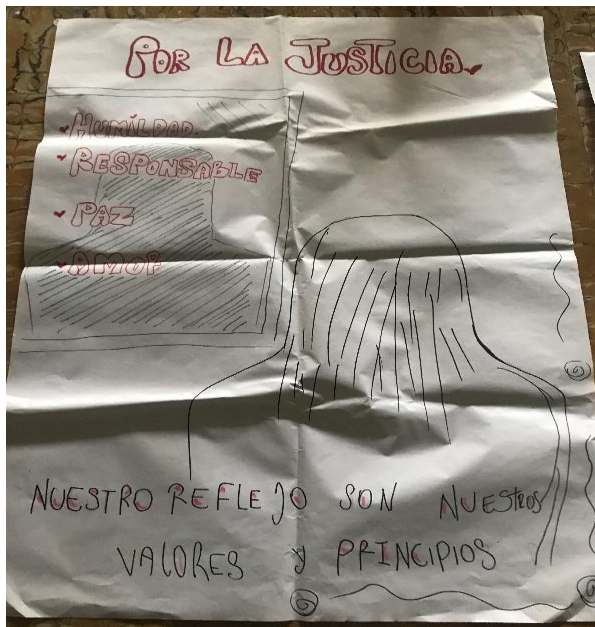 POR LA JUSTICIA
HUMÍLDAD.
RESPONSABLE
PAZ
AMOR
NUESTRO REFLEJO SON NUEStROS
VALORES y PRINCIPIOS